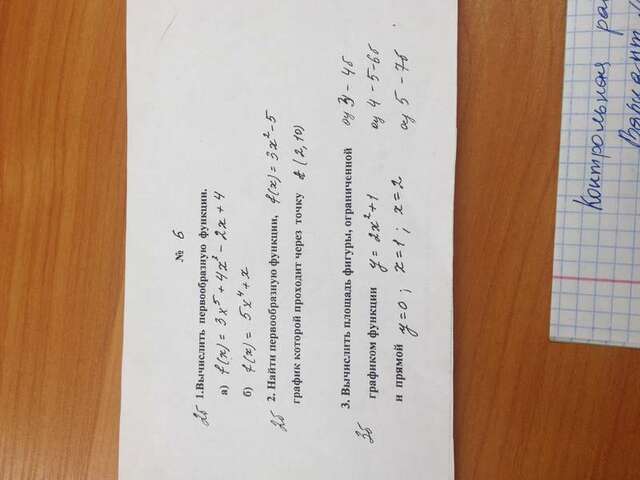 № 6
2б 1.Вычислить первообразную функции.
а) f(x) = 3x⁵ + 4x² - 2x + 4
б) f(x) = 5x⁴ + x
2б 2. Найти первообразную функции, f(x) = 3x² - 5
график которой проходит через точку A (2, 10)
3б 3. Вычислить площадь фигуры, ограниченной оц 3 - 4б
графиком функции y = 2x² + 1 оц 4 - 5-6б
и прямой y = 0 ; x = 1 ; x = 2 оц 5 - 7б
Контрольная ра
Вариант